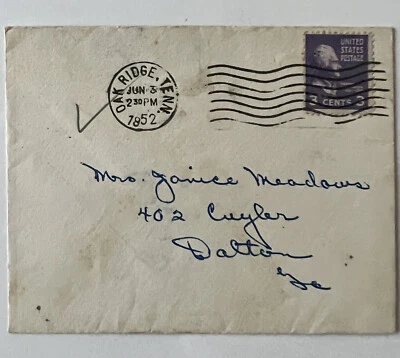 OAK RIDGE, TENN.
JUN 3
2 30 PM
1952
UNITED
STATES
POSTAGE
3 CENTS 3
Mrs. Janice Meadows
402 Cuyler
Dalton
Ga